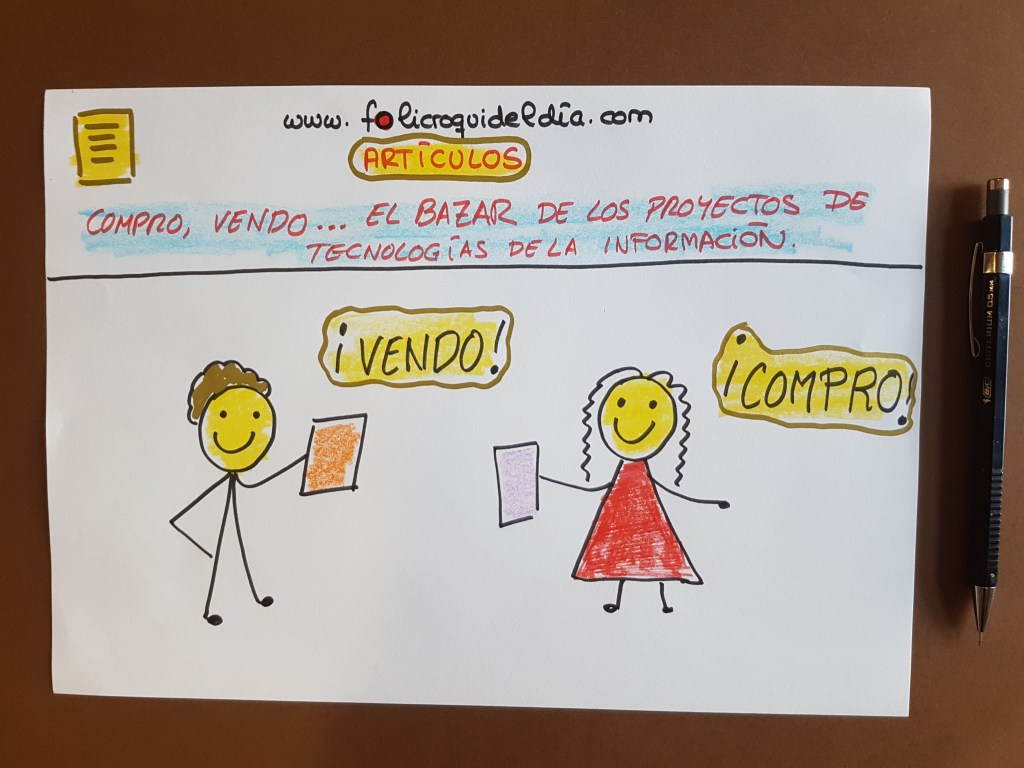 www.folicroquideldía.com
ARTÍCULOS
COMPRO, VENDO... EL BAZAR DE LOS PROYECTOS DE
TECNOLOGÍAS DE LA INFORMACIÓN.
¡VENDO!
¡COMPRO!
BIC CRITERIUM 0.5